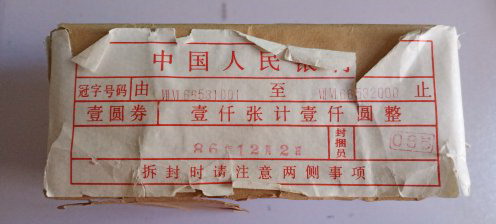 中国人民银行
冠字号码 由 66531001 至 66532000 止
壹圆券 壹仟张计壹仟圆整
86年12月2日 封捆员
拆封时请注意两侧事项